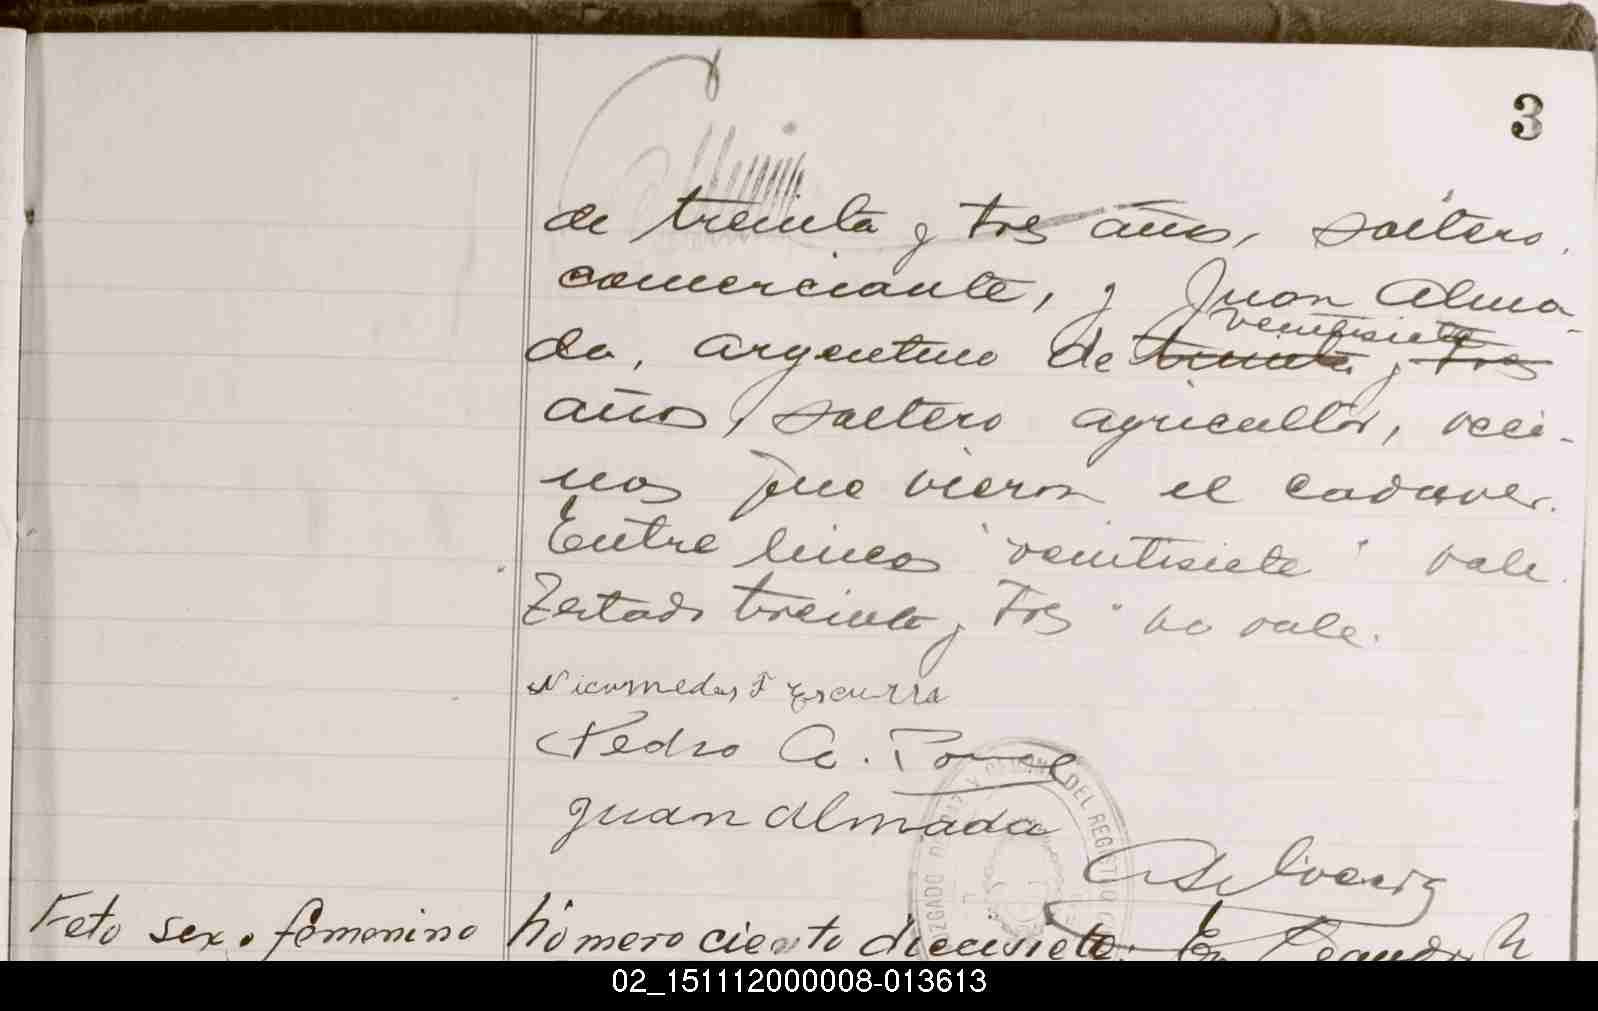 3
de treinta y tres años, soltero,
comerciante, y Juan Alma-
da, argentino de treinta y tres
veintisiete
años, soltero agricultor, veci-
nos que vieron el cadaver.
Entre lineas "veintisiete" vale.
Testado treinta y tres" no vale.
Nicomedes F Escurra
Pedro A.
Juan Almada
DEL REGISTRO
Feto sexo femenino
Número ciento diecisiete. En
02_151112000008-013613